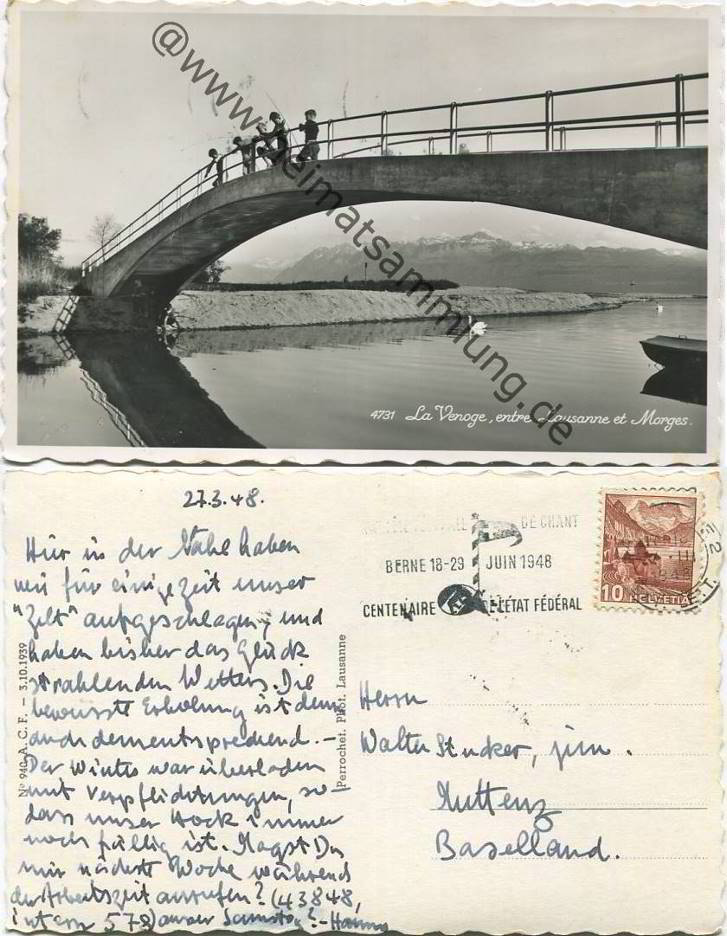 @www.heimatsammlung.de
4731 La Venoge, entre Lausanne et Morges.
27.3.48.
Hier in der Nähe haben
wir für einige Zeit unser
"Zelt" aufgeschlagen und
haben bisher das Glück
strahlenden Wetters. Die
bewusste Erholung ist denn
auch dementsprechend. –
Der Winter war überladen
mit Verpflichtungen, so-
dass unser Hock immer
noch fällig ist. Magst Du
mir nächste Woche während
der Arbeitszeit anrufen? (43848,
intern 578) ausser Samstag? –
Nº 940 A. C. F. — 3.10.1939
Perrochet, Phot. Lausanne
DE CHANT
BERNE 18-29 JUIN 1948
CENTENAIRE DE L'ÉTAT FÉDÉRAL
10 HELVETIA
Herrn
Walter Stucker, jun.
Muttenz
Baselland.